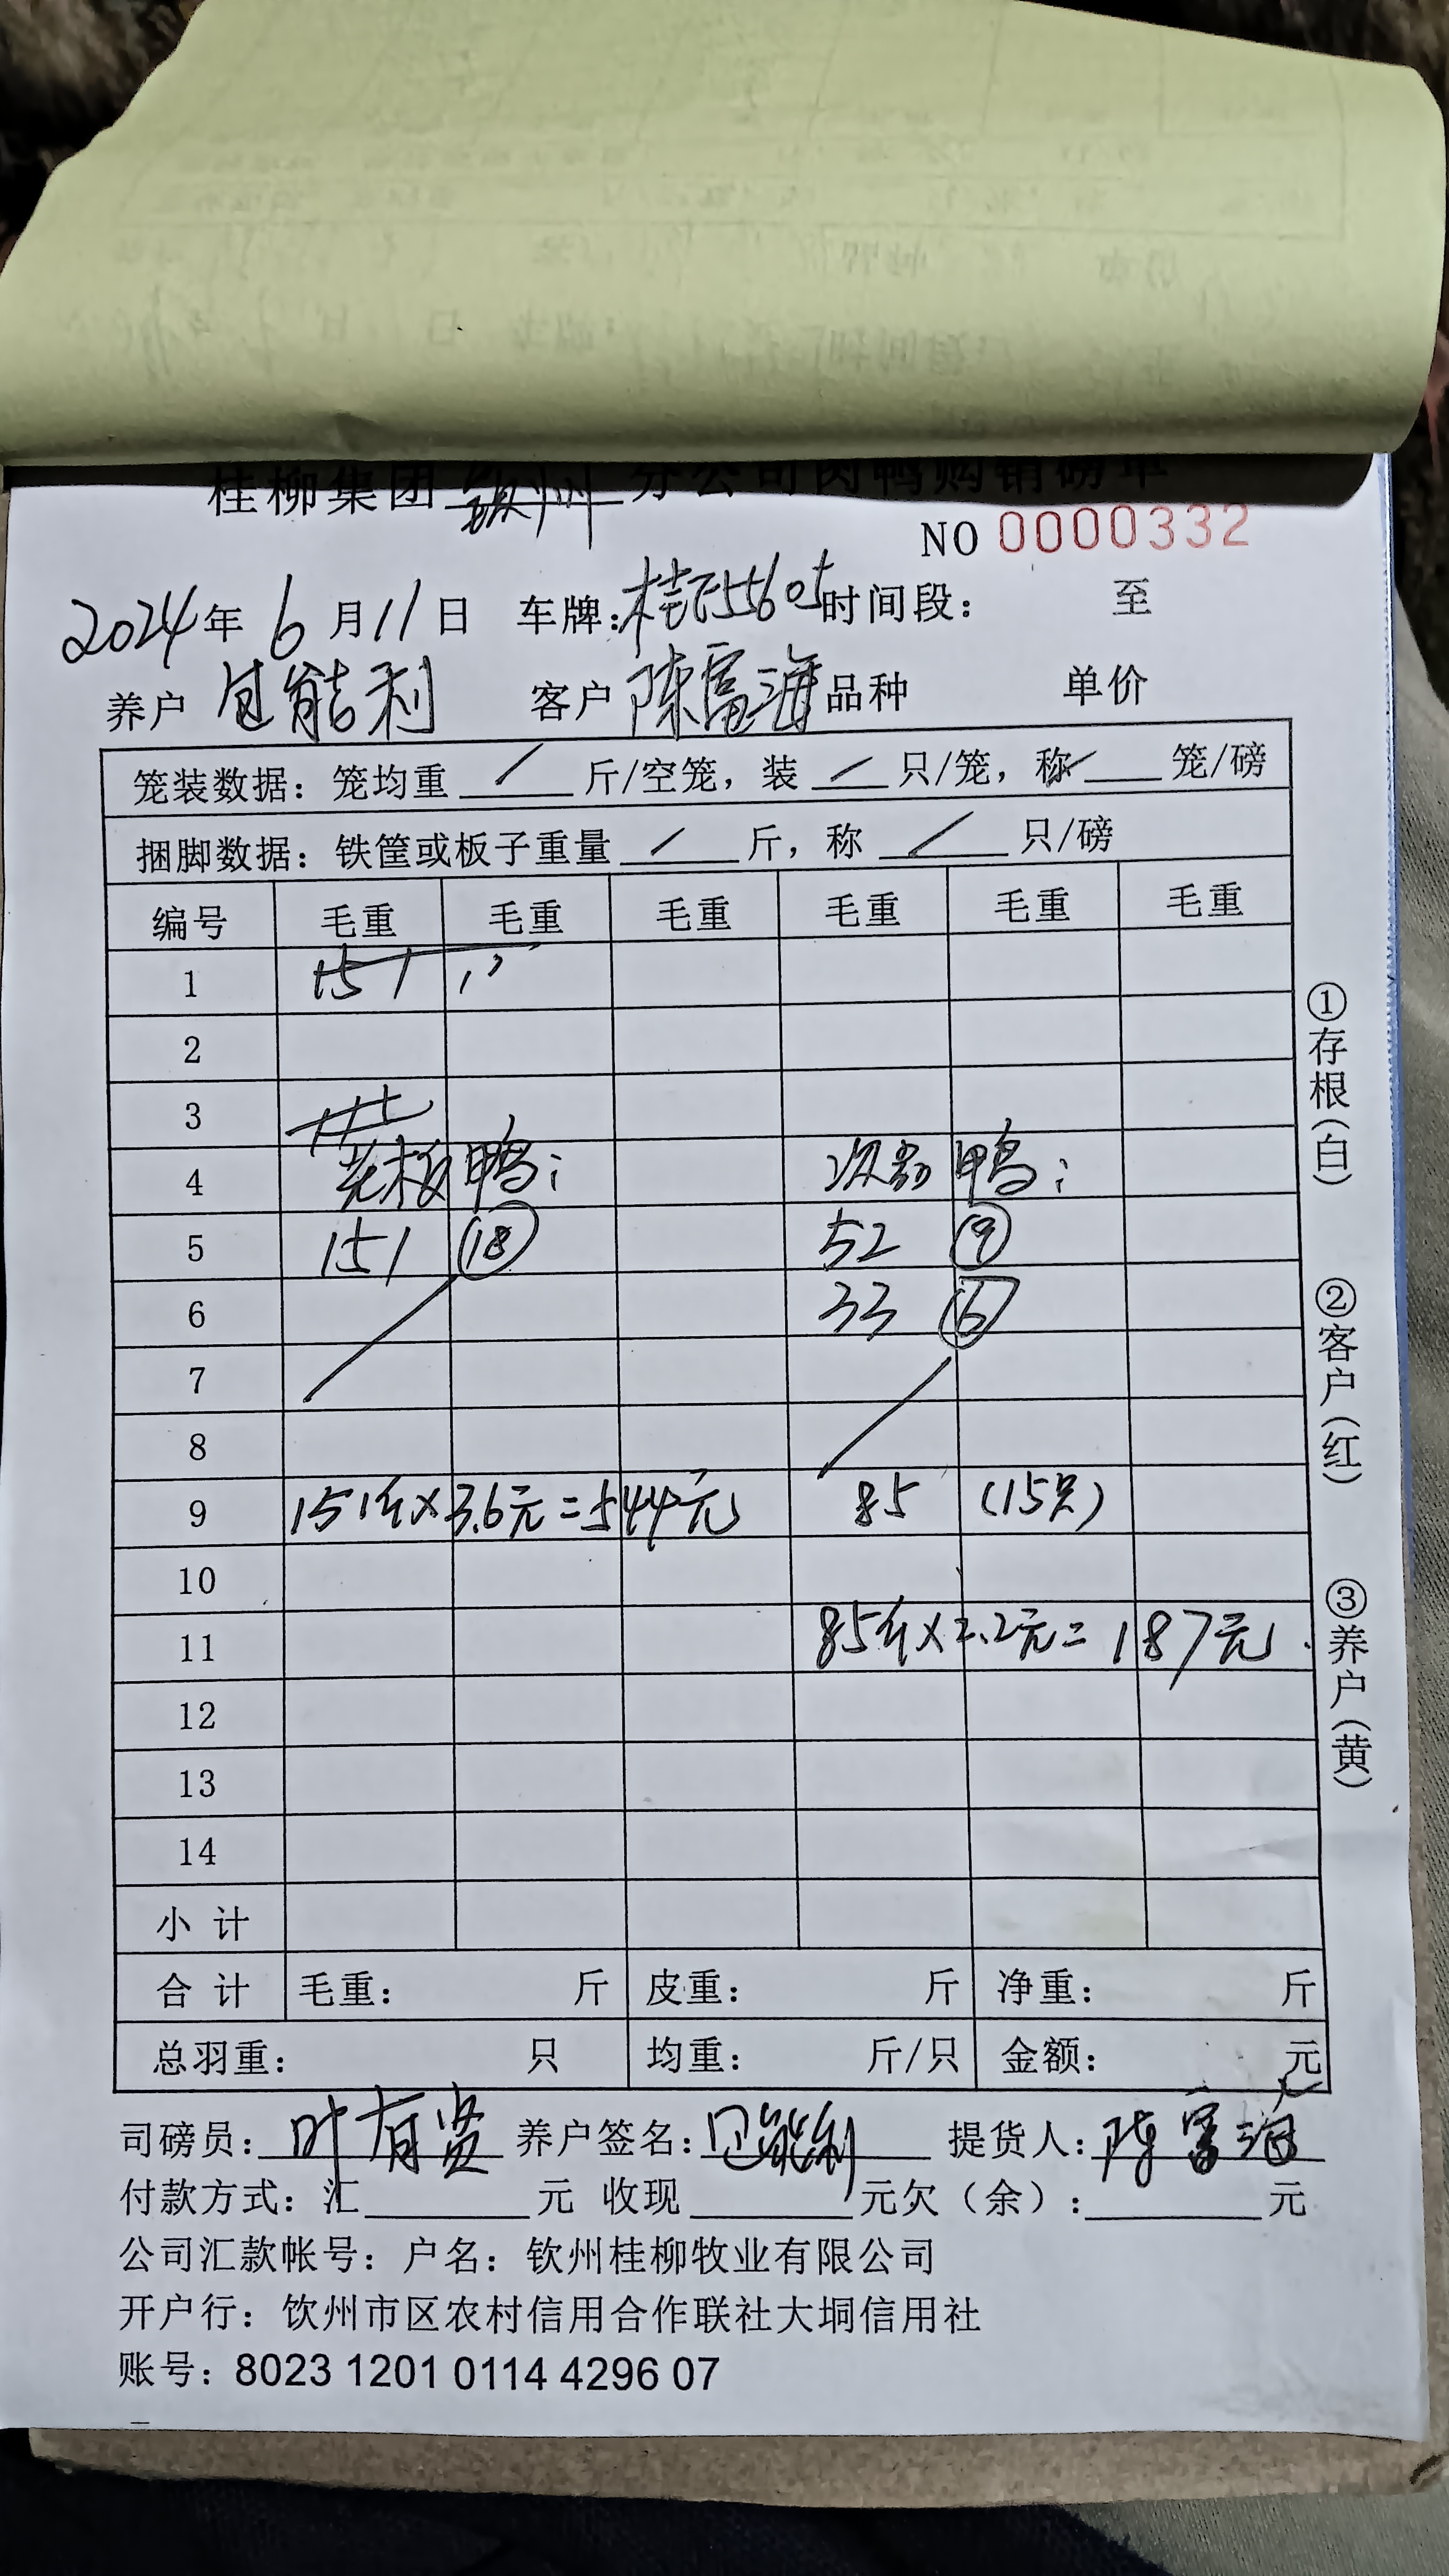 桂柳集团 钦州 分公司肉鸭购销磅单
NO 0000332
2024年 6月11日 车牌: 时间段： 至
养户 能利 客户 陈富海 品种 单价
笼装数据：笼均重 / 斤/空笼，装 / 只/笼，称 / 笼/磅
捆脚数据：铁筐或板子重量 / 斤，称 / 只/磅
编号 毛重 毛重 毛重 毛重 毛重 毛重
1 151
2
3
4 老板鸭： 次品鸭：
5 151 ⑱ 52 ⑨
6 33 ⑥
7
8
9 151斤×3.6元=544元 85 （15只）
10
11 85斤×2.2元=187元.
12
13
14
小 计
合 计 毛重： 斤 皮重： 斤 净重： 斤
总羽重： 只 均重： 斤/只 金额： 元
司磅员：叶有贤 养户签名： 能利 提货人：陈富海
付款方式：汇 元 收现 元欠（余）： 元
公司汇款帐号：户名：钦州桂柳牧业有限公司
开户行：饮州市区农村信用合作联社大垌信用社
账号：8023 1201 0114 4296 07
①存根（白）
②客户（红）
③养户（黄）